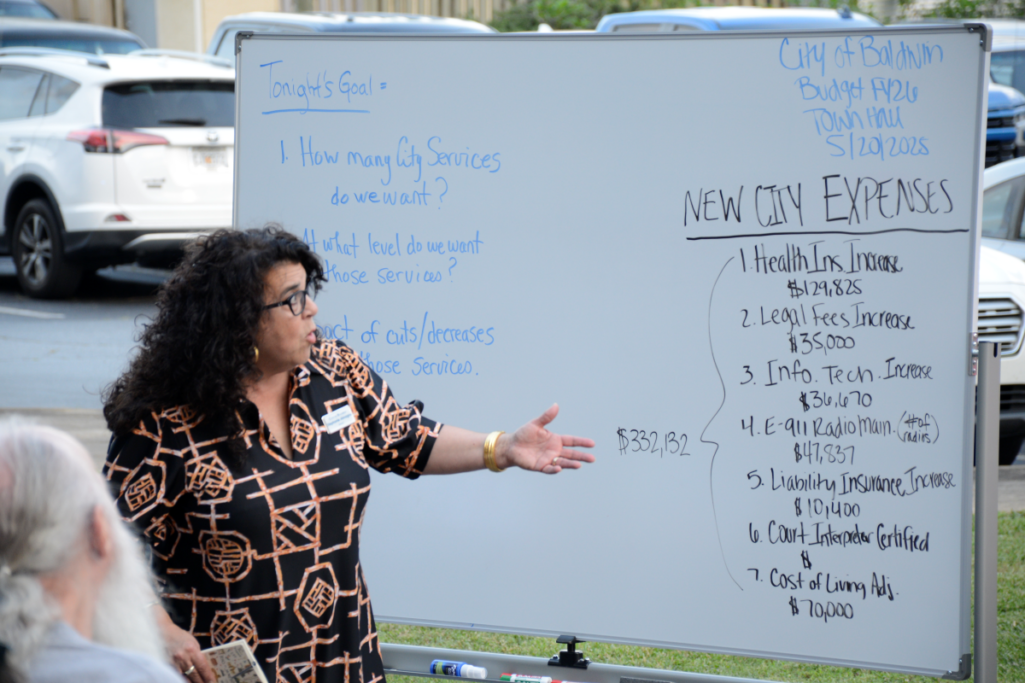 Tonight's Goal =
1. How many City Services
do we want?
At what level do we want
those services?
of cuts/decreases
those services.
City of Baldwin
Budget FY26
Town Hall
5/20/2025
NEW CITY EXPENSES
1. Health Ins. Increase
$129,825
2. Legal Fees Increase
$35,000
3. Info. Tech. Increase
$36,670
4. E-911 Radio Main. (# of radios)
$47,837
5. Liability Insurance Increase
$10,400
6. Court Interpreter Certified
$
7. Cost of Living Adj.
$70,000
$332,132